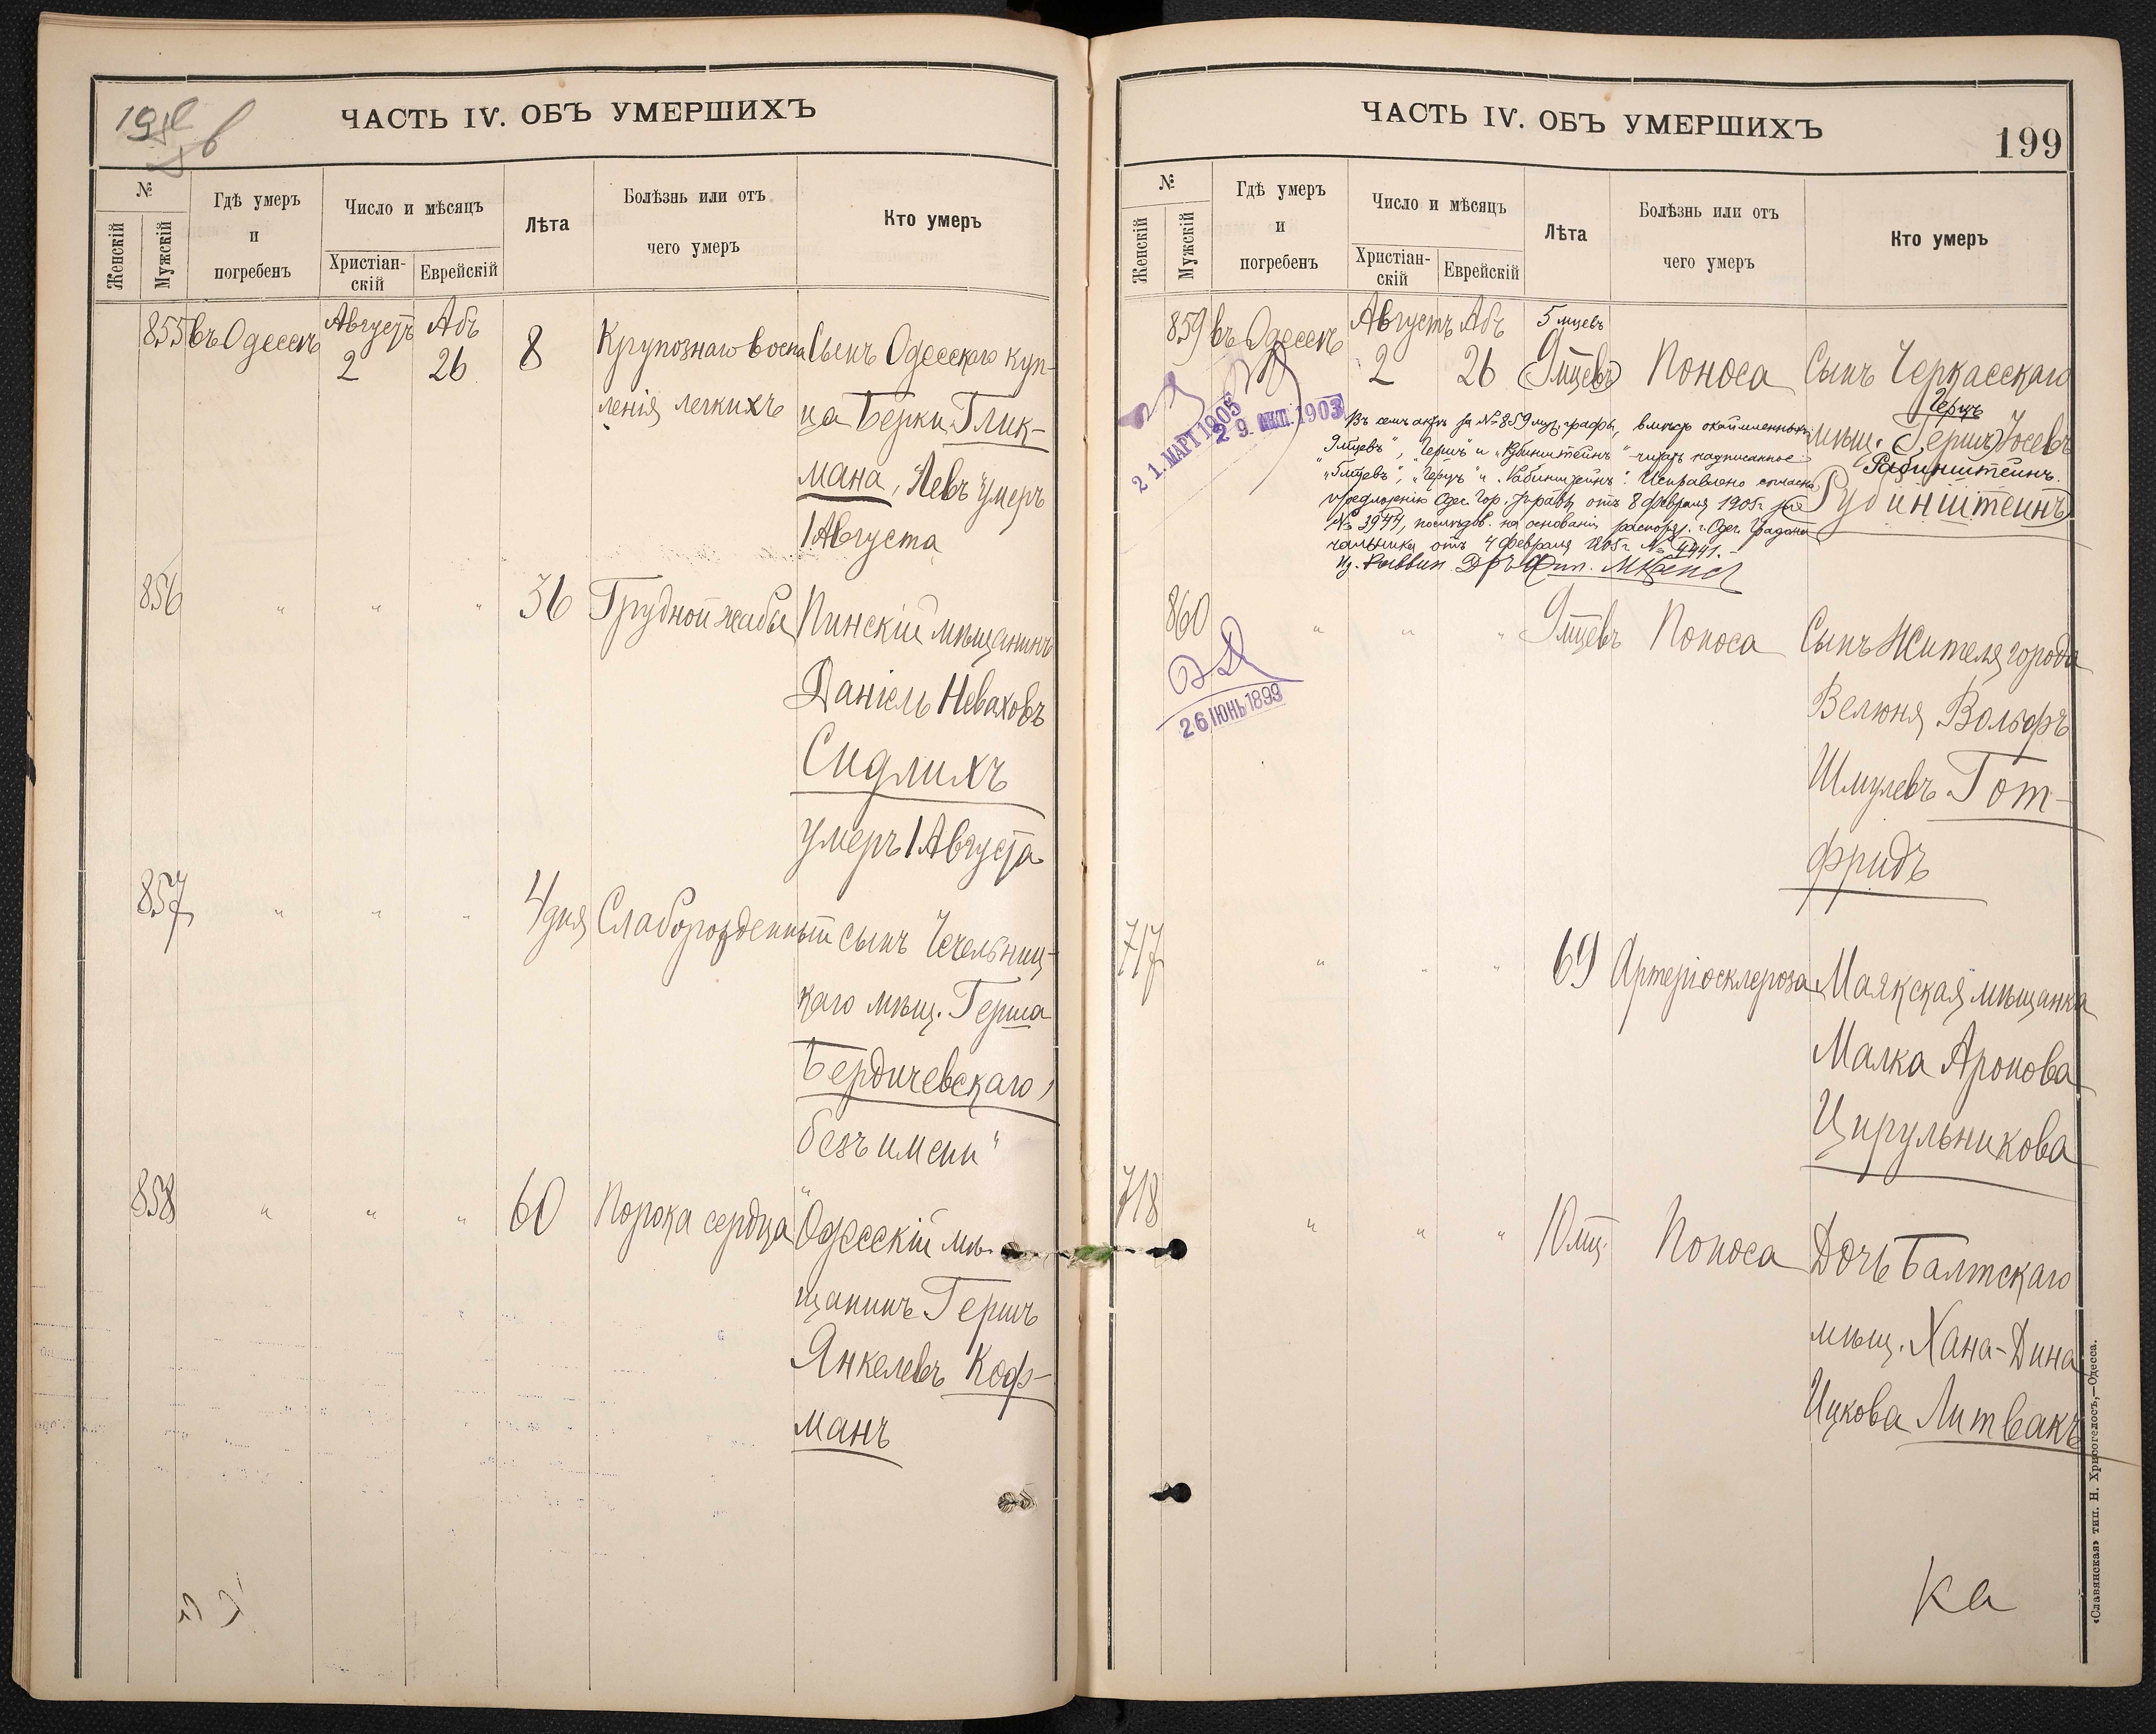 ЧАСТЬ IV. ОБЪ УМЕРШИХЪ
№
Женскій
Мужскій
Гдѣ умеръ
и
погребенъ
Число и мѣсяцъ
Христіан-
скій
Еврейскій
Лѣта
Болѣзнь или отъ
чего умеръ
Кто умеръ
855 въ Одессѣ Августъ Абъ 8 Крупознаго воспа Сынъ Одесскаго куп-
2 26
ленія легкихъ ца Берки Глик-
мана, Левъ умеръ
1 Августа
856 " " " 36 Грудной жабы Пинскій мѣщанинъ
Даніель Неваховъ
Сидлихъ
умеръ 1 Августа
857 " " " 4 дня Слаборожденный сынъ Чечельниц-
каго мѣщ. Герша
Бердичевскаго,
безъ имени"
858 " " " 60 Порока сердца Одесскій мѣ-
щанинъ Гершъ
Янкелевъ Коф-
манъ
ЧАСТЬ IV. ОБЪ УМЕРШИХЪ
199
№
Женскій
Мужскій
Гдѣ умеръ
и
погребенъ
Число и мѣсяцъ
Христіан-
скій
Еврейскій
Лѣта
Болѣзнь или отъ
чего умеръ
Кто умеръ
859 въ Одессѣ Августъ Абъ 5 мцевъ
2 26 9 мцевъ Поноса Сынъ Черкасскаго
Герцъ
мѣщ. Гершъ Іосевъ
Рабинштейнъ.
Рубинштейнъ
21. МАРТ 1905
29. 1903
Въ семъ актѣ за № 859 муж. графы, вмѣсто окаймленныхъ
"9 мцевъ", "Гершъ" и "Рубинштейнъ" – читать надписанное:
"5 мцевъ", "Герцъ" и "Рабинштейнъ". Исправлено согласно
предложенію Одес. Гор. Управы отъ 8 февраля 1905 г. за
№ 3944, послѣдов. на основаніи распоряж. г. Одес. Градона
чальника отъ 4 февраля 1905 г. № 4441. –
860 " " " 9 мцевъ Поноса Сынъ Жителя города
Велюня Вольфъ
Шмулевъ Гот-
фридъ
26 ІЮНЬ 1899
717 " " " 69 Артеріосклероза Маякская мѣщанка
Малка Аронова
Цирульникова
718 " " " 10 мц. Поноса Дочь Балтскаго
мѣщ. Хана-Дина
Ицкова Литвакъ
ка
«Славянская» тип. Н. Хрисогелосъ,—Одесса.